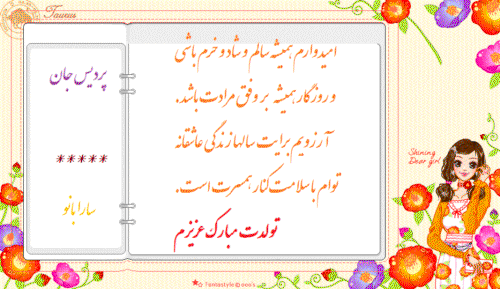 Taurus
امیدوارم همیشه سالم و شاد و خرم باشی
و روزگار همیشه بر وفق مرادت باشد.
آرزویم برایت سالها زندگی عاشقانه
توام با سلامت کنار همسرت است.
تولدت مبارک عزیزم
پردیس جان
*****
سارا بانو
Shining
Dear girl
Fantastyle @